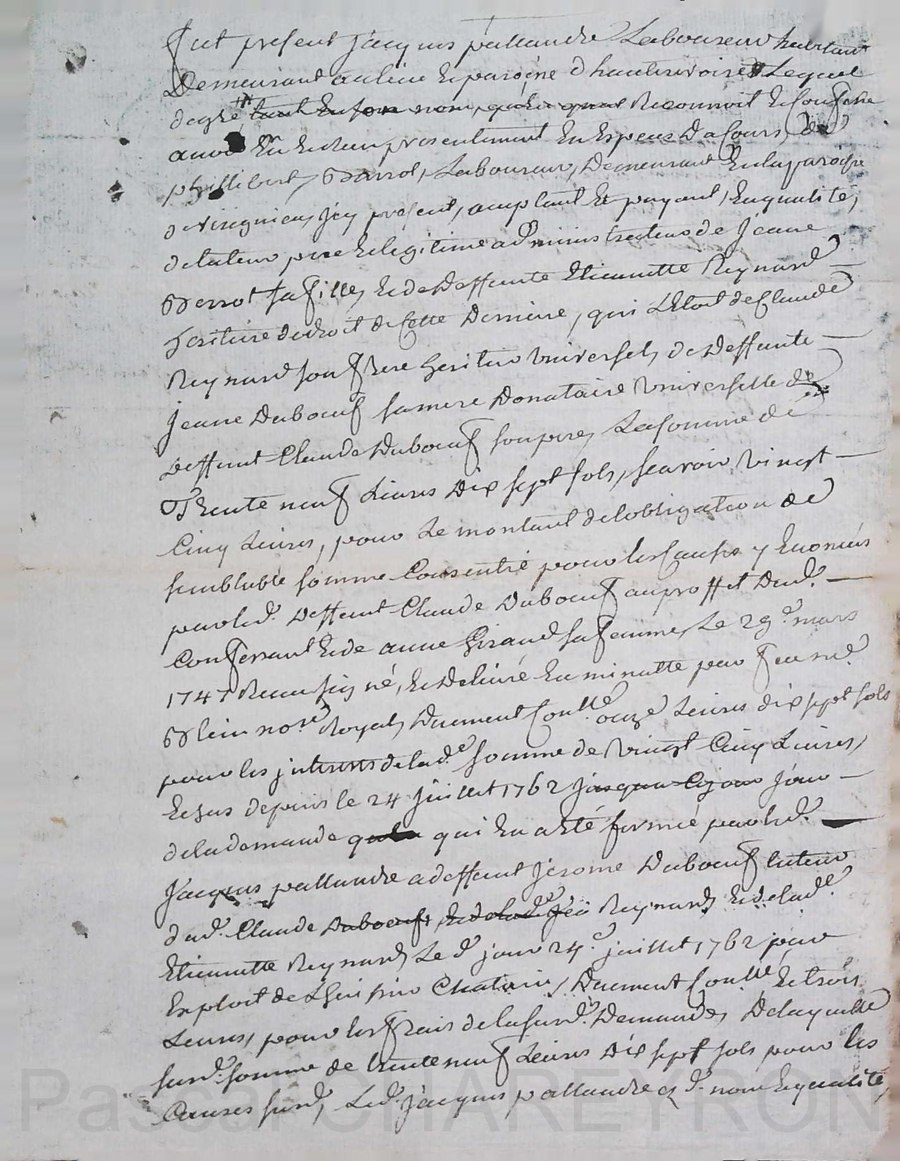 fut present Jacques pallandre Laboureur habitant
Demeurant au lieu et paroisse d'hauterivoire Lequel
de gré tant en son nom qu'en qual Reconnoit et Confesse
avoir Eu et Receu presentement En Especes Du Cours, de
phillibert Berrot, Laboureur, Demeurant En la paroisse
de , Icy present, acceptant Et payant, En qualité,
de tuteur pere et legitime administrateur de Jeanne
Berrot sa fille, et de Deffunte Etiennette Reynard
heritiere de droit de Cette Derniere, qui L'etoit de Claude
Reynard son frere heritier Universel, de Deffunte
Jeanne Duboeuf sa mere Donataire Universelle de
Deffunt Claude Duboeuf son pere, La somme de
Trente neuf Livres Dix sept sols, scavoir Vingt
Cinq Livres, pour Le montant de l'obligation de
semblable somme Consentie pour les Causes y Enoncées
par led. Deffunt Claude Duboeuf au proffit Dud.
Confessant et de anne Giraud sa femme, Le 29e. mars
1747 Receu signé, et Delivré En minutte par feu me.
Blein nore. Royal, Duement Conllé onze Livres dix sept sols
pour les interets de lad. somme de Vingt Cinq Livres,
Echus depuis le 24 juillet 1762 jusqu'au Ce jour jour
de la demande qui En a été formée par led.
Jacques pallandre a deffunt Jerome Duboeuf tuteur
dud. Claude Duboeuf, Reynard, et de lad.
Etiennette Reynard, Led. jour 24e. juillet 1762 par
Exploit de L'huissier Chatain, Duement Conllé, et trois
Livres, pour les frais de la susd. Demande, De laquelle
susd. somme de trente neuf Livres Dix sept sols pour les
Causes susd, Led. Jacques pallandre nom et qualité,
Pascal CHAREYRON